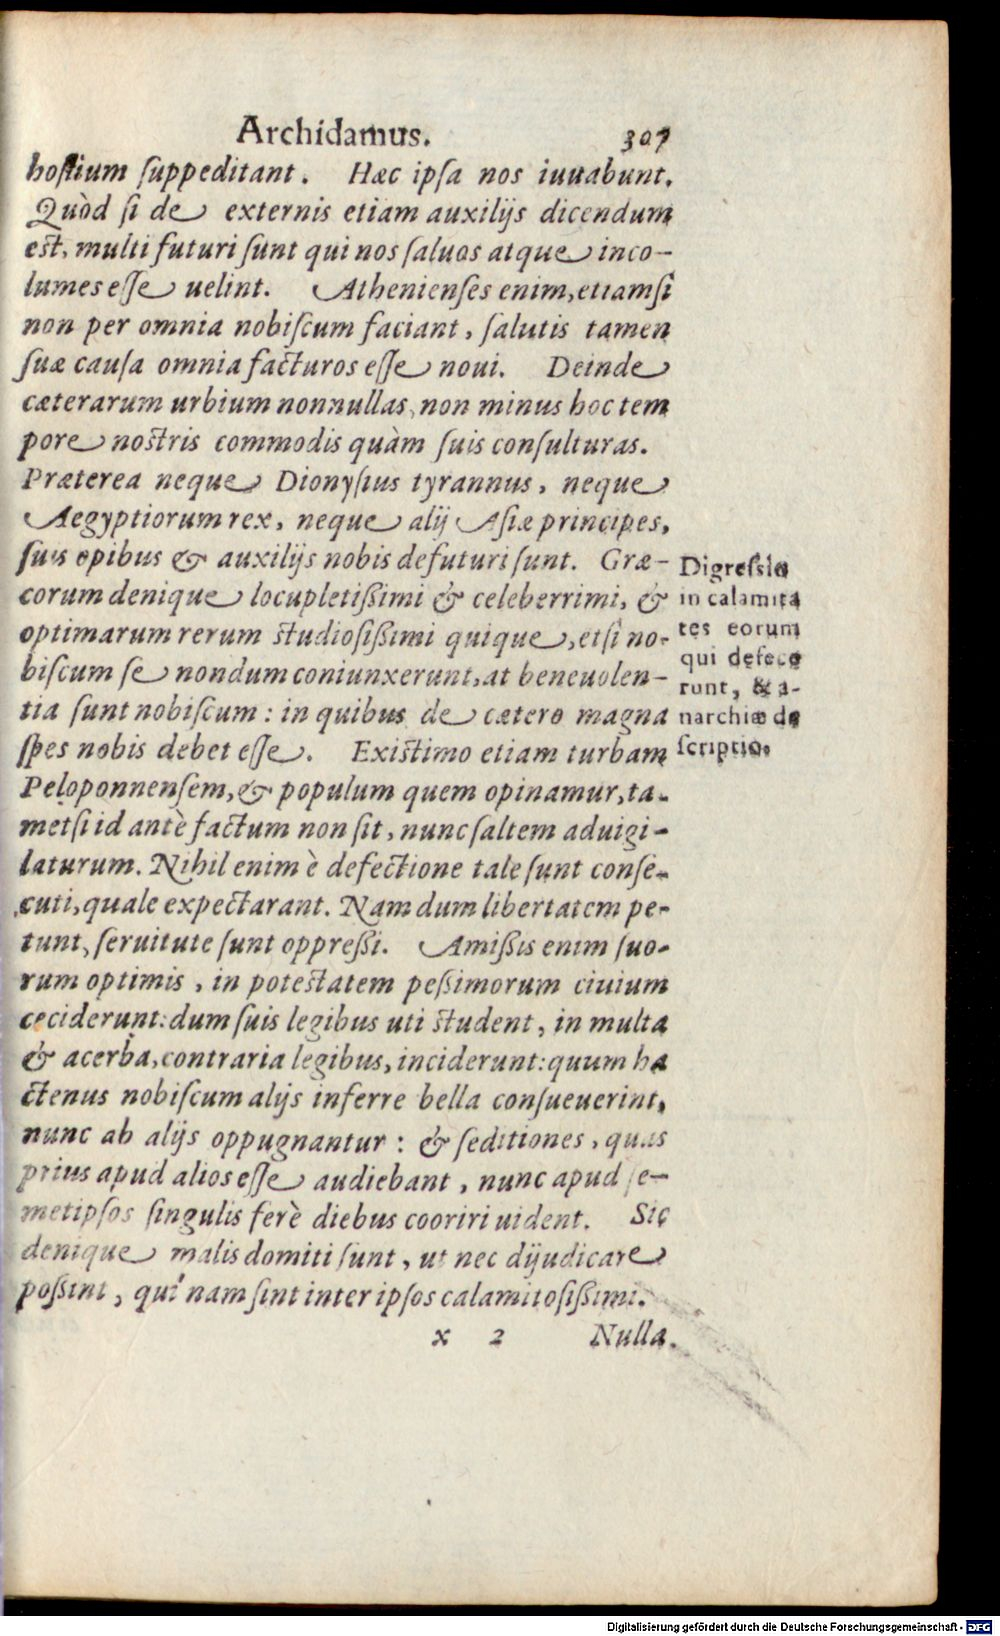 Archidamus. 307
hoſtium ſuppeditant. Hæc ipſa nos iuuabunt.
Quòd ſi de externis etiam auxilijs dicendum
eſt, multi futuri ſunt qui nos ſaluos atque inco-
lumes eſſe uelint. Athenienſes enim, etiamſi
non per omnia nobiſcum faciant, ſalutis tamen
ſuæ cauſa omnia facturos eſſe noui. Deinde
cæterarum urbium nonnullas, non minus hoc tem
pore noſtris commodis quàm ſuis conſulturas.
Præterea neque Dionyſius tyrannus, neque
Aegyptiorum rex, neque alij Aſiæ principes,
ſuis opibus & auxilijs nobis defuturi ſunt. Græ-
corum denique locupletißimi & celeberrimi, &
optimarum rerum ſtudioſißimi quique, etſi no-
biſcum ſe nondum coniunxerunt, at beneuolen-
tia ſunt nobiſcum: in quibus de cætero magna
ſpes nobis debet eſſe. Exiſtimo etiam turbam
Peloponnenſem, & populum quem opinamur, ta-
metſi id antè factum non ſit, nunc ſaltem aduigi-
laturum. Nihil enim è defectione tale ſunt conſe-
cuti, quale expectarant. Nam dum libertatem pe-
tunt, ſeruitute ſunt oppreßi. Amißis enim ſuo-
rum optimis, in poteſtatem peßimorum ciuium
ceciderunt: dum ſuis legibus uti ſtudent, in multa
& acerba, contraria legibus, inciderunt: quum ha
ctenus nobiſcum alijs inferre bella conſueuerint,
nunc ab alijs oppugnantur: & ſeditiones, quas
prius apud alios eſſe audiebant, nunc apud ſe-
metipſos ſingulis ferè diebus cooriri uident. Sic
denique malis domiti ſunt, ut nec dijudicare
poßint, qui nam ſint inter ipſos calamitoſißimi.
x 2 Nulla.
Digreſsio
in calamita
tes eorum
qui defece
runt, & a-
narchiæ de
ſcriptio.
Digitalisierung gefördert durch die Deutsche Forschungsgemeinschaft - DFG